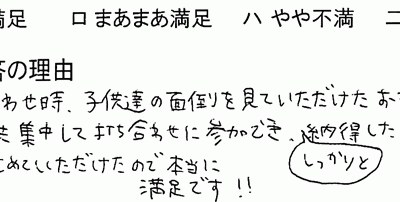 満足 ロ まあまあ満足 ハ やや不満 ニ
答の理由
わせ時、子供達の面倒りを見ていただけたお
集中して打ち合わせに参加でき、納得した
しっかりと
めていただけたので本当に
満足です!!